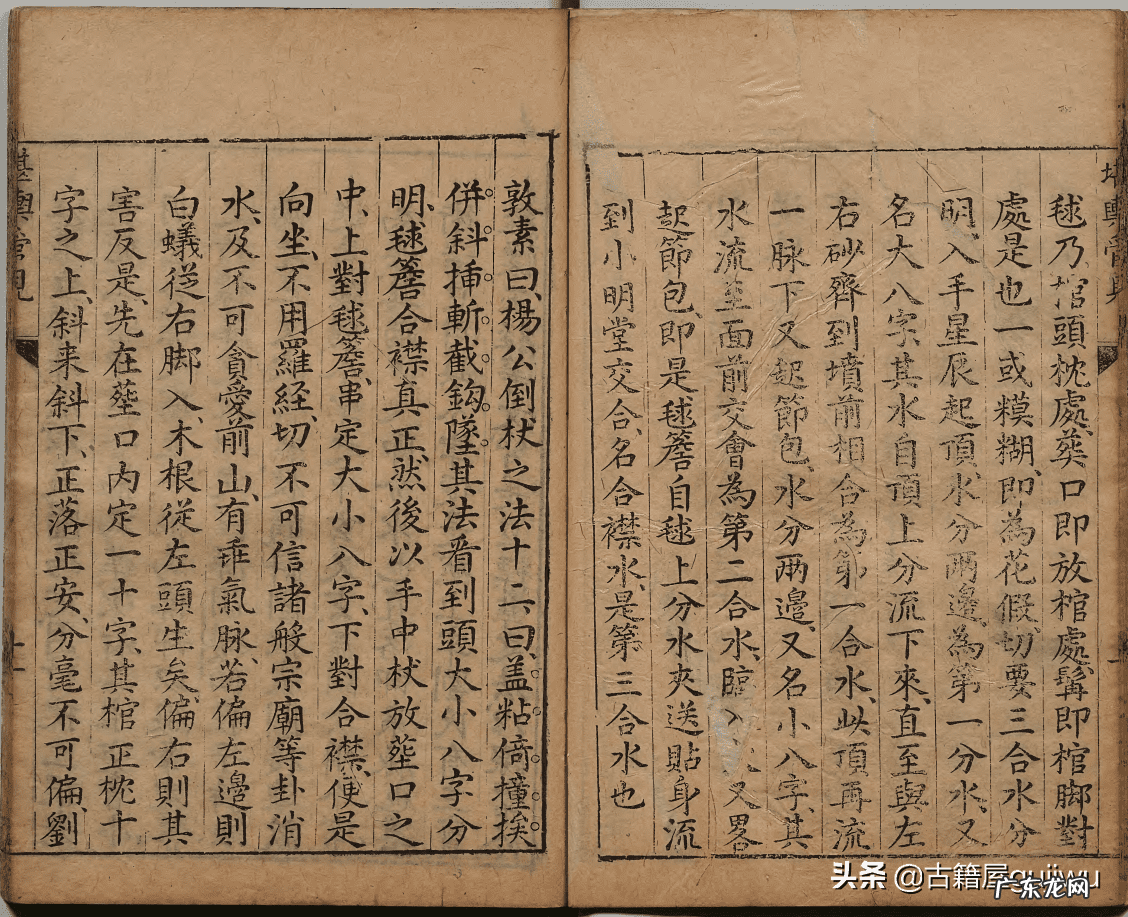 毬乃棺頭枕處葬口即放棺處髯即棺脚對
處是也一或糢糊即為花假切要三合水分
明入手星辰起頂水分兩邊為第一分水又
名大八字其水自頂上分流下來直至與左
右砂齊到墳前相合為第一合水此頂再流
一脉下又起節包水分兩邊又名小八字其
水流至面前交會為第二合水臨入又畧
起節包即是毬簷自毬上分水夾送貼身流
到小明堂交合名合襟水是第三合水也
敦素曰楊公倒杖之法十二曰盖粘倚撞挨
併斜揷斬截鈎墜其法看到頭大小八字分
明毬簷合襟真正然後以手中杖放塟口之
中上對毬簷串定大小八字下對合襟便是
向坐不用羅經切不可信諸般宗廟等卦消
水及不可貪愛前山有乖氣脉若偏左邊則
白蟻從右脚入木根從左頭生矣偏右則其
害反是先在塟口内定一十字其棺正枕十
字之上斜来斜下正落正安分毫不可偏劉
堪輿管見
头条 @古籍屋gujiwu
广东龙网